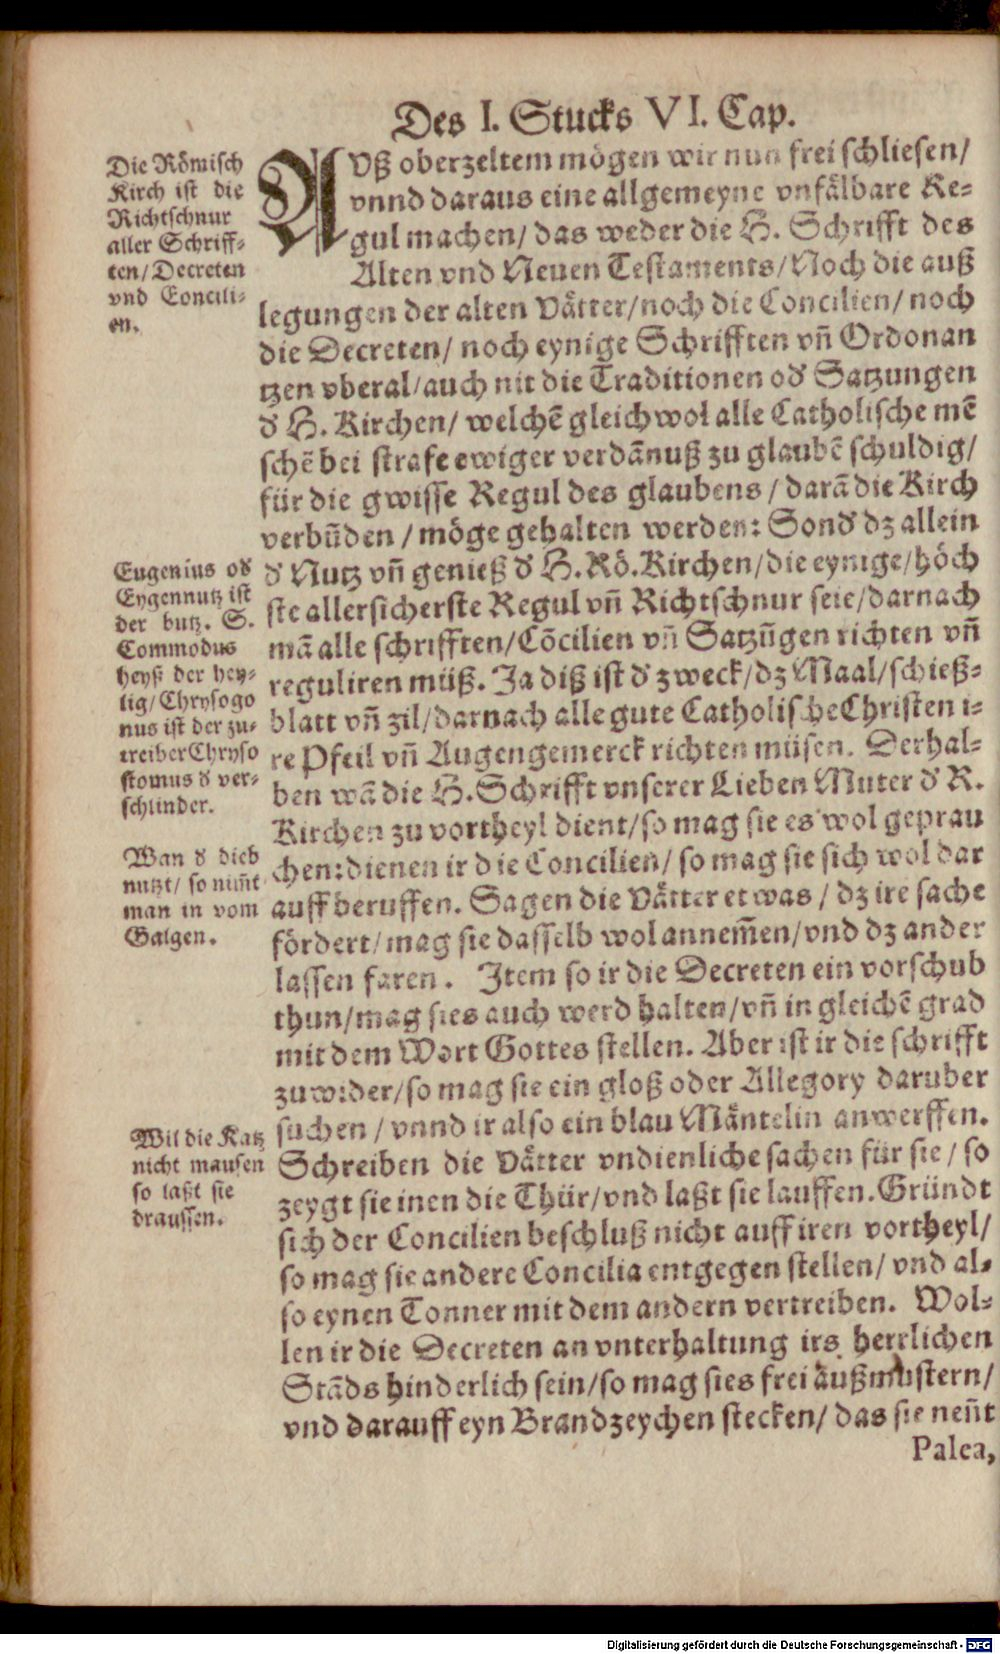 Des I. Stucks VI. Cap.
Die Römisch
Kirch ist die
Richtschnur
aller Schriff-
ten/ Decreten
vnd Concili-
en.
AVß oberzeltem mögen wir nun frei schliesen/
vnnd daraus eine allgemeyne vnfälbare Re-
gul machen/ das weder die H. Schrifft des
Alten vnd Neuen Testaments/ Noch die auß
legungen der alten Vätter/ noch die Concilien/ noch
die Decreten/ noch eynige Schrifften vñ Ordonan
tzen vberal/ auch nit die Traditionen oď Satzungen
ď H. Kirchen/ welchẽ gleichwol alle Catholische mẽ
schẽ bei strafe ewiger verdãnuß zu glaubẽ schuldig/
für die gwisse Regul des glaubens / darã die Kirch
verbũden / möge gehalten werden: Sonď dz allein
ď Nutz vñ genieß ď H. Rö. Kirchen/ die eynige/ höch
ste allersicherste Regul vñ Richtschnur seie/ darnach
mã alle schrifften/ Cõcilien vñ Satzũgen richten vñ
reguliren müß. Ja diß ist ď zweck/ dz Maal/ schieß-
blatt vñ zil/ darnach alle gute Catholische Christen i-
re Pfeil vñ Augengemerck richten müsen. Derhal-
ben wã die H. Schrifft vnserer Lieben Muter ď R.
Kirchen zu vortheyl dient/ so mag sie es wol geprau
chen: dienen ir die Concilien/ so mag sie sich wol dar
auff beruffen. Sagen die Vätter etwas / dz ire sache
fördert/ mag sie dasselb wol annem̃en/ vnd dz ander
lassen faren. Item so ir die Decreten ein vorschub
thun/ mag sies auch werd halten/ vñ in gleichẽ grad
mit dem Wort Gottes stellen. Aber ist ir die schrifft
zuwider/ so mag sie ein gloß oder Allegory daruber
suchen / vnnd ir also ein blau Mäntelin anwerffen.
Schreiben die Vätter vndienliche sachen für sie/ so
zeygt sie inen die Thür/ vnd laßt sie lauffen. Gründt
sich der Concilien beschluß nicht auff iren vortheyl/
so mag sie andere Concilia entgegen stellen/ vnd al-
so eynen Tonner mit dem andern vertreiben. Wol-
len ir die Decreten an vnterhaltung irs herrlichen
Stãds hinderlich sein/ so mag sies frei außmustern/
vnd darauff eyn Brandzeychen stecken/ das sie neñt
Palea,
Eugenius oď
Eygennutz ist
der butz. S.
Commodus
heyß der hey-
lig/ Chrysogo
nus ist der zu-
treiber Chryso
stomus ď ver-
schlinder.
Wan ď dieb
nutzt/ so nim̃t
man in vom
Galgen.
Wil die Katz
nicht mausen
so laßt sie
draussen.
Digitalisierung gefördert durch die Deutsche Forschungsgemeinschaft - DFG